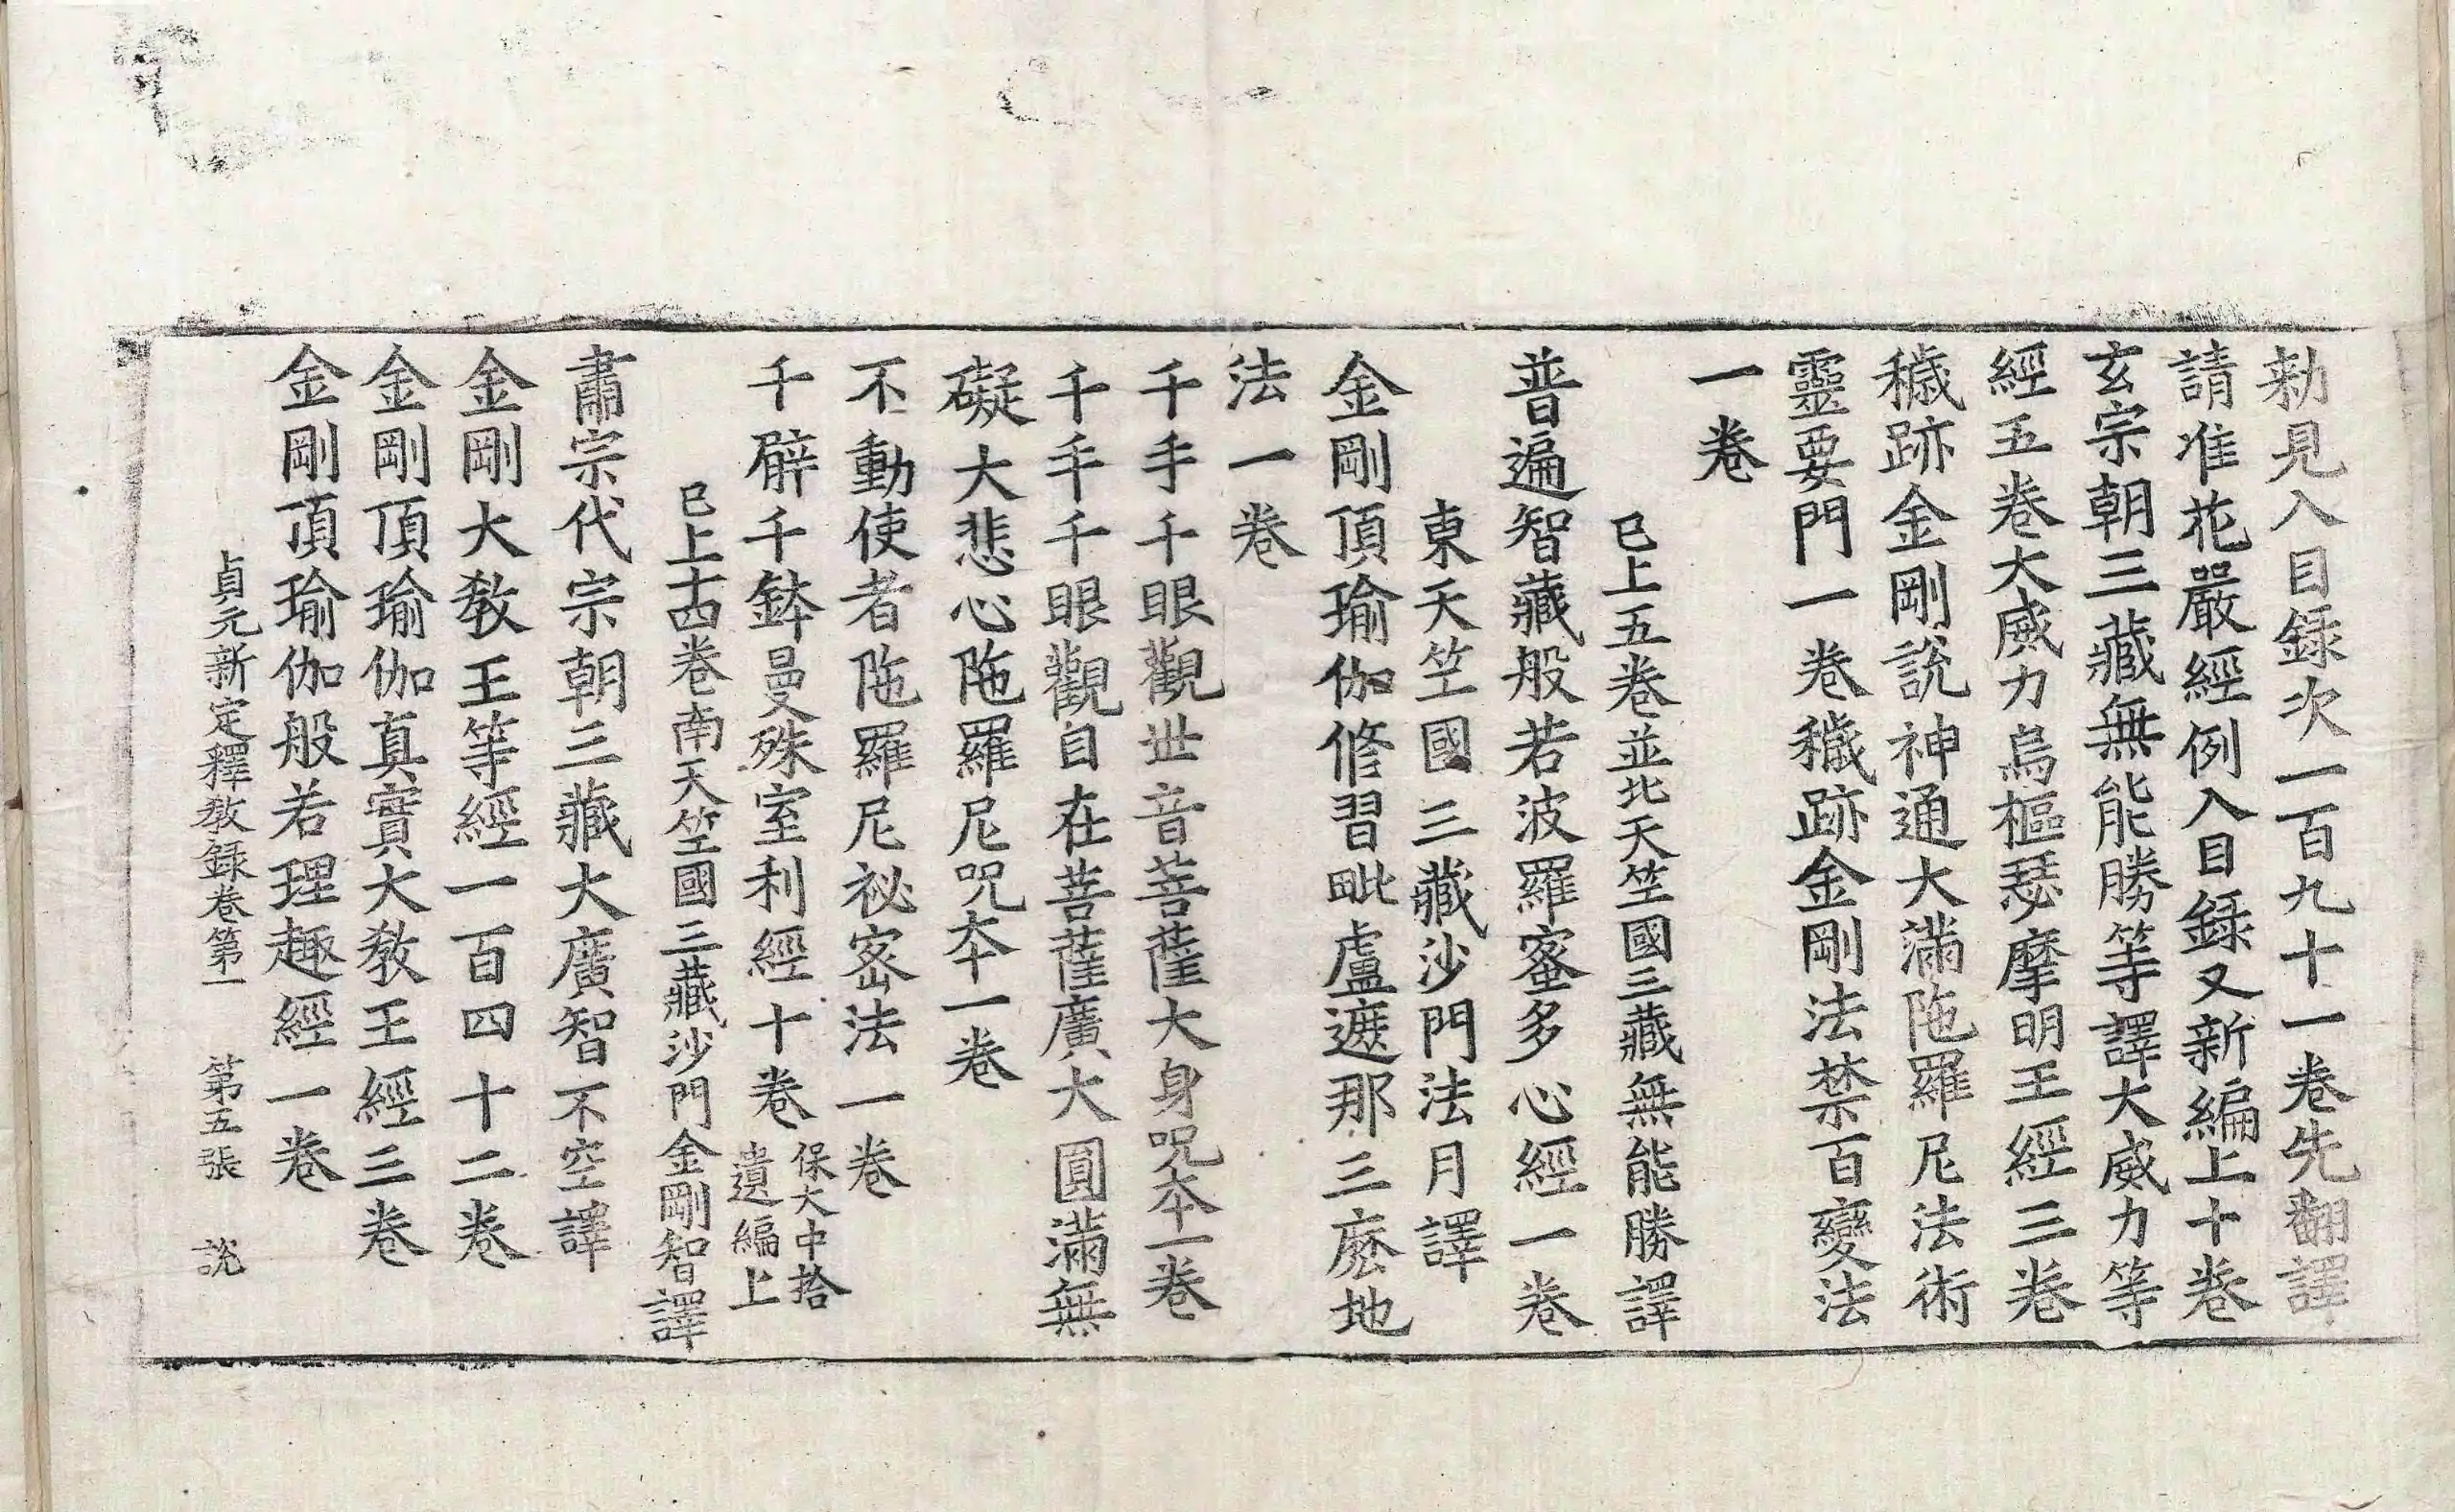 勑見入目録次一百九十一卷先翻譯
請准花嚴經例入目録又新編上十卷
玄宗朝三藏無能勝等譯大威力等
經五卷大威力烏樞瑟摩明王經三卷
穢跡金剛說神通大滿陁羅尼法術
靈要門一卷穢跡金剛法禁百變法
一卷
已上五卷並北天竺國三藏無能勝譯
普遍智藏般若波羅蜜多心經一卷
東天竺國三藏沙門法月譯
金剛頂瑜伽修習毗盧遮那三麽地
法一卷
千手千眼觀世音菩薩大身呪夲一卷
千手千眼觀自在菩薩廣大圓滿無
礙大悲心陁羅尼呪夲一卷
不動使者陁羅尼祕密法一卷
千臂千鉢曼殊室利經十卷保大中拾遺編上
已上十四卷南天竺國三藏沙門金剛智譯
肅宗代宗朝三藏大廣智不空譯
金剛大教王等經一百四十二卷
金剛頂瑜伽真實大教王經三卷
金剛頂瑜伽般若理趣經一卷
貞元新定釋教録卷第一 第五張 說